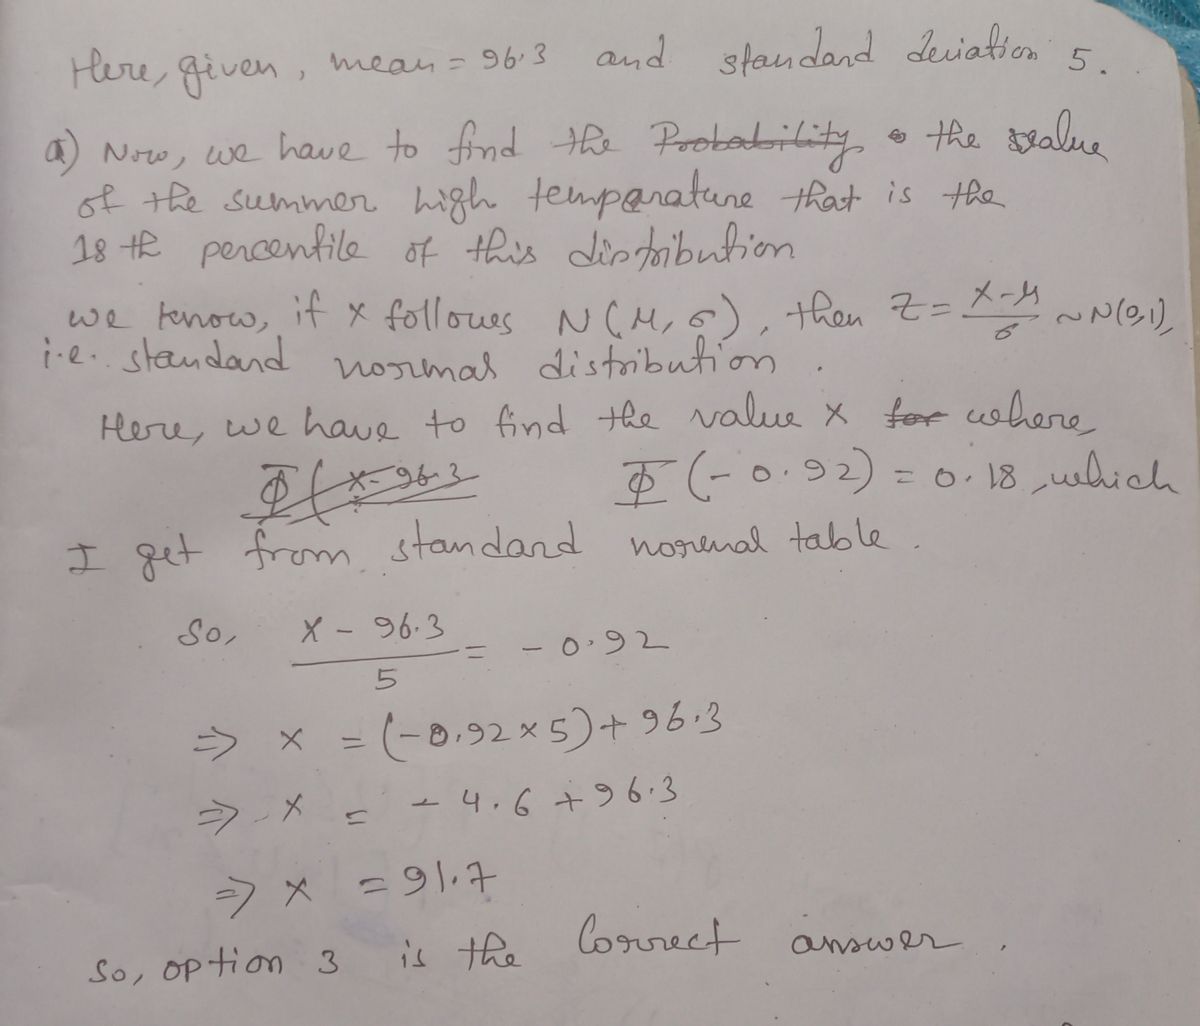 Here, given, mean = 96.3 and standard deviation 5.
a) Now, we have to find the Probability the value
of the summer high temparature that is the
18 th percentile of this distribution
we know, if x follows N(μ, σ), then Z = (X-μ)/σ ~ N(0,1),
i.e. standard normal distribution.
Here, we have to find the value x for where,
Φ(x-96.3 Φ(-0.92) = 0.18, which
I get from standard normal table.
So, (X - 96.3)/5 = -0.92
⇒ x = (-0.92 × 5) + 96.3
⇒ x = - 4.6 + 96.3
⇒ x = 91.7
So, option 3 is the Correct answer.